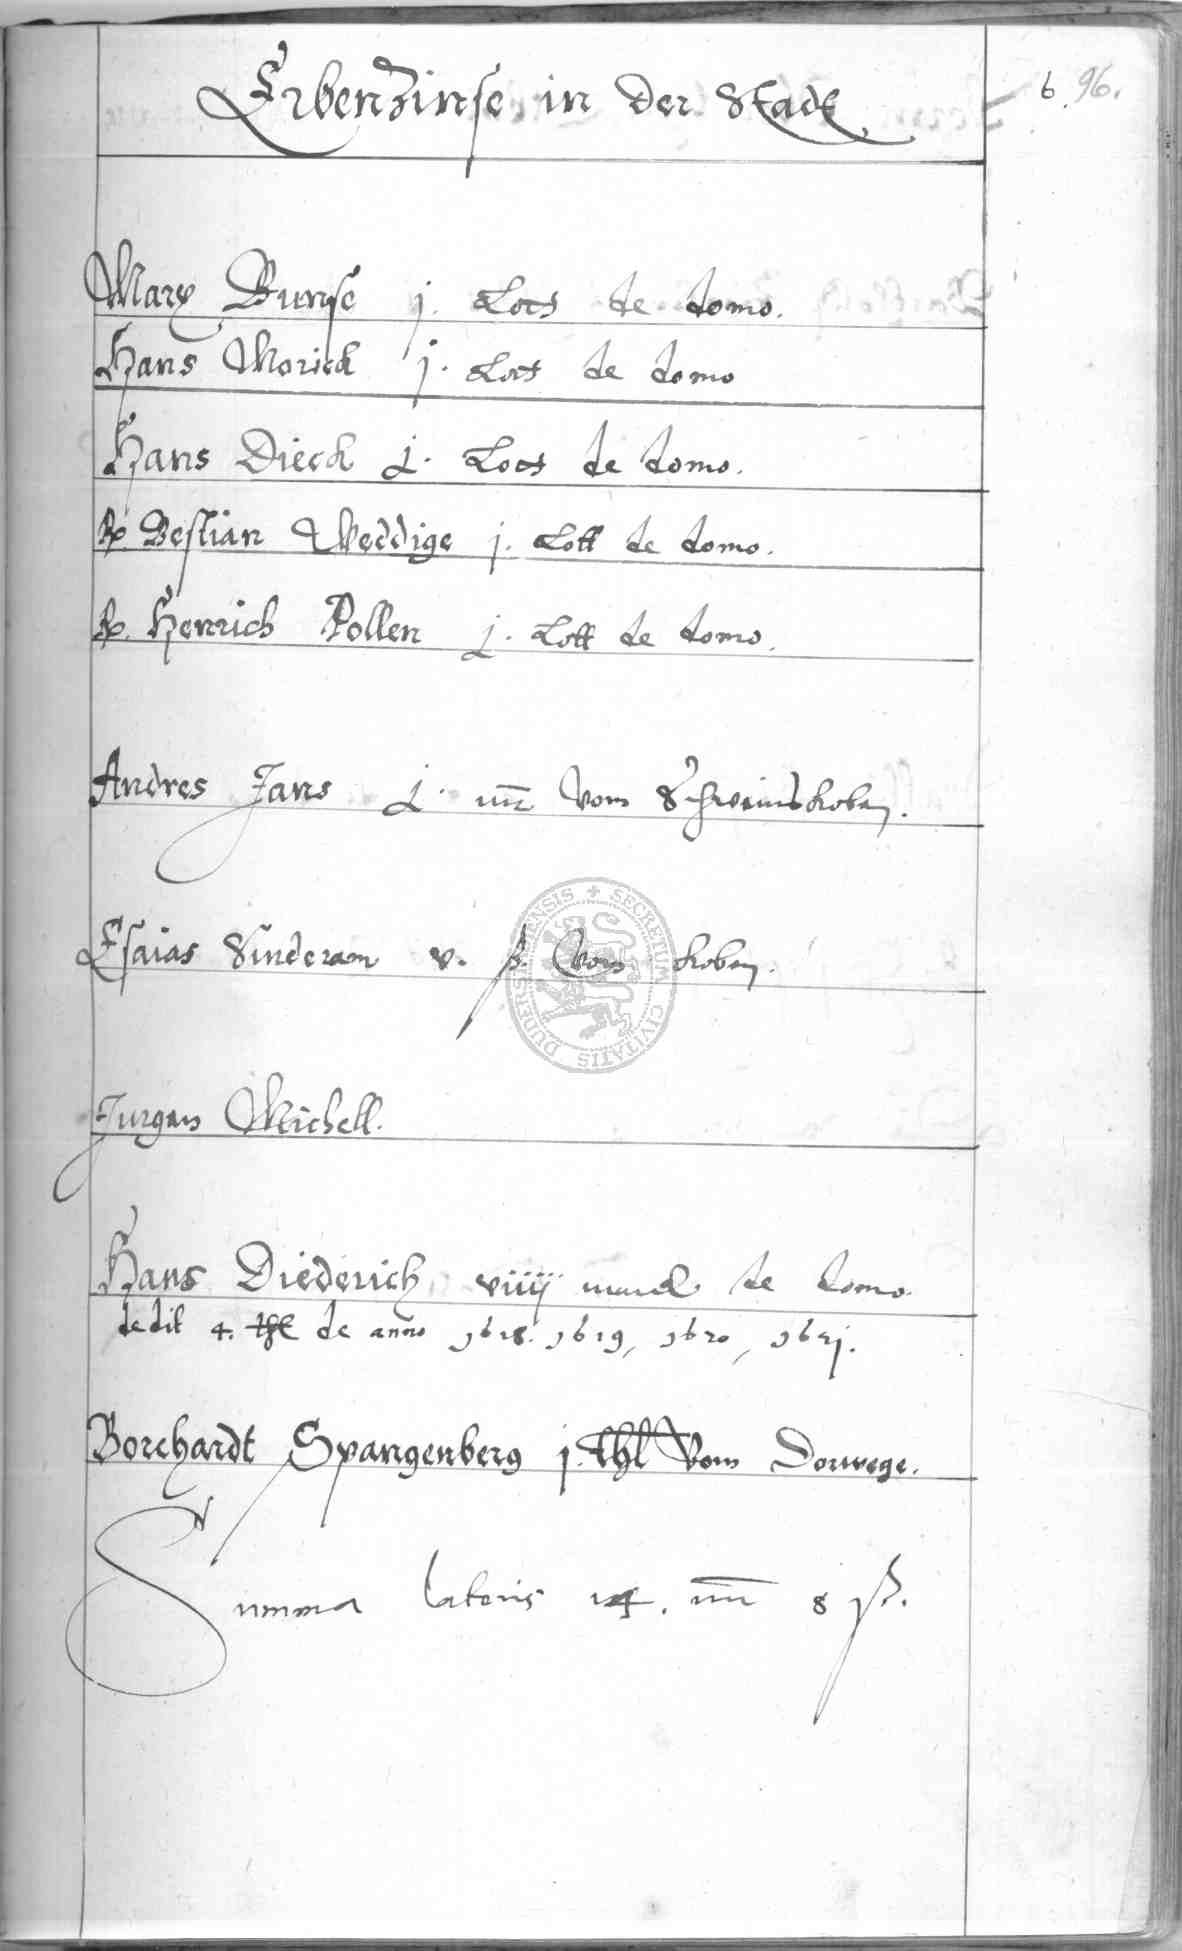 Erbenzinse in der Stadt
6. 96.
Marx Bunse j. Lott de domo.
Hans Morick j. Lott de domo
Hans Dieck j. Lott de domo.
Rp. Bestian Weddige j. Lott de domo.
Rp. Henrich Pollen j. Lott de domo.
Andres Jans j. mr vom Schweinskoben.
Esaias Sinderam v. ß. vom koben.
Jurgen Michell.
Hans Diederich viiij marck de domo.
dedit 4. thl de anno 1618. 1619, 1620, 1621.
Borchardt Spangenberg j. thl Vom Dorwege.
Summa lateris 14. mr 8 ß.
SECRETUM CIVITATIS DUDERSTADENSIS